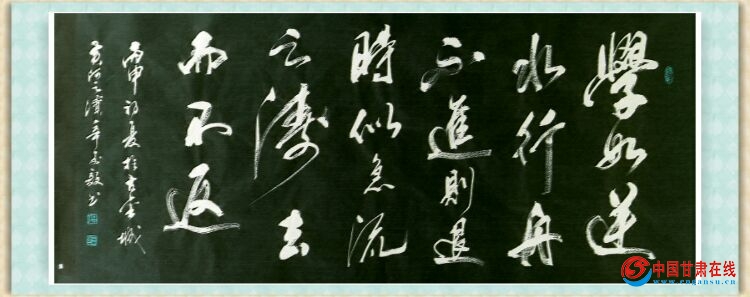 學如逆
水行舟
不進則退
時似急流
之濤去
而不返
丙申初夏於古金城
黄河之濱辛书
中国甘肃在线
www.cngansu.cn